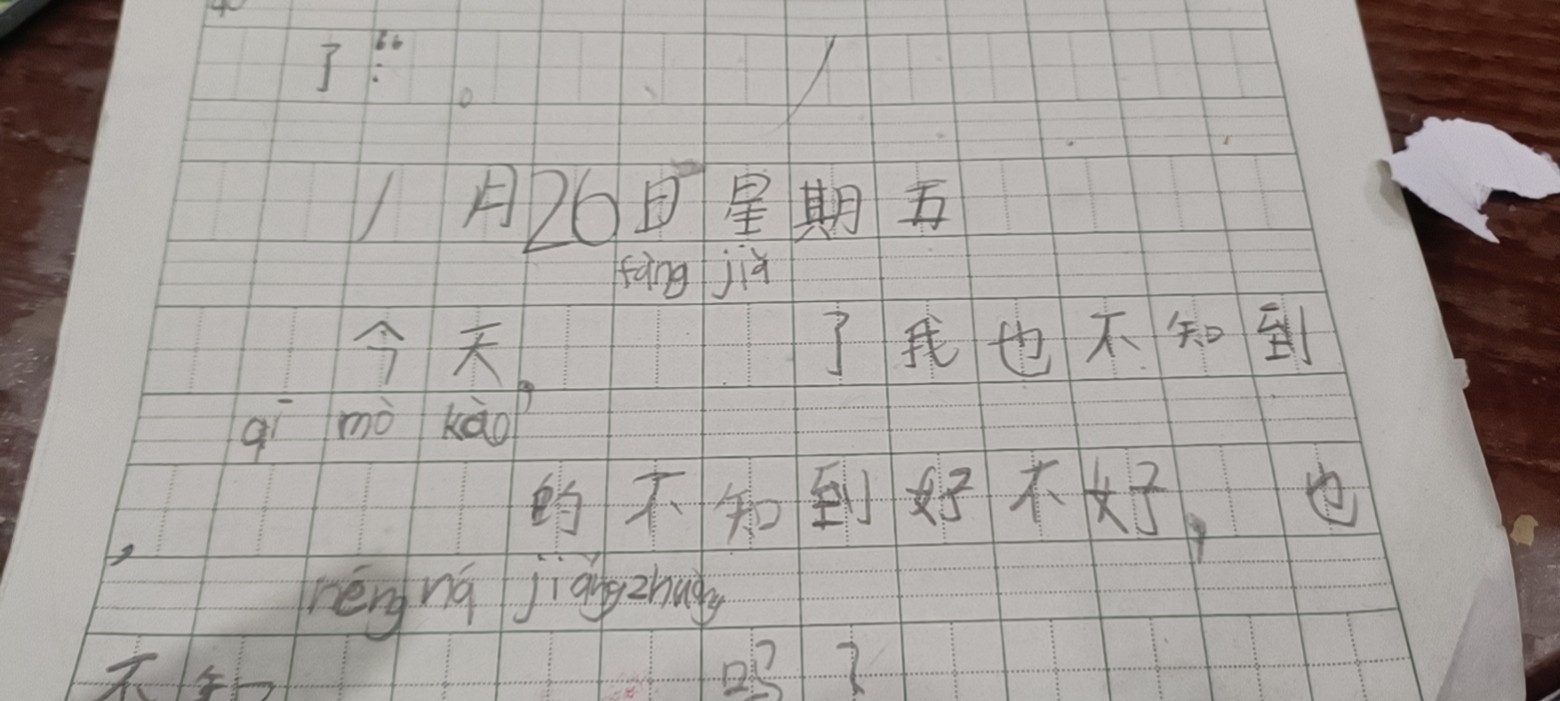 了：“
1月26日星期五
fàng jià
今天，了我也不知到
qī mò kǎo
，的不知到好不好，也
néng ná jiǎng zhuàng
不知吗？